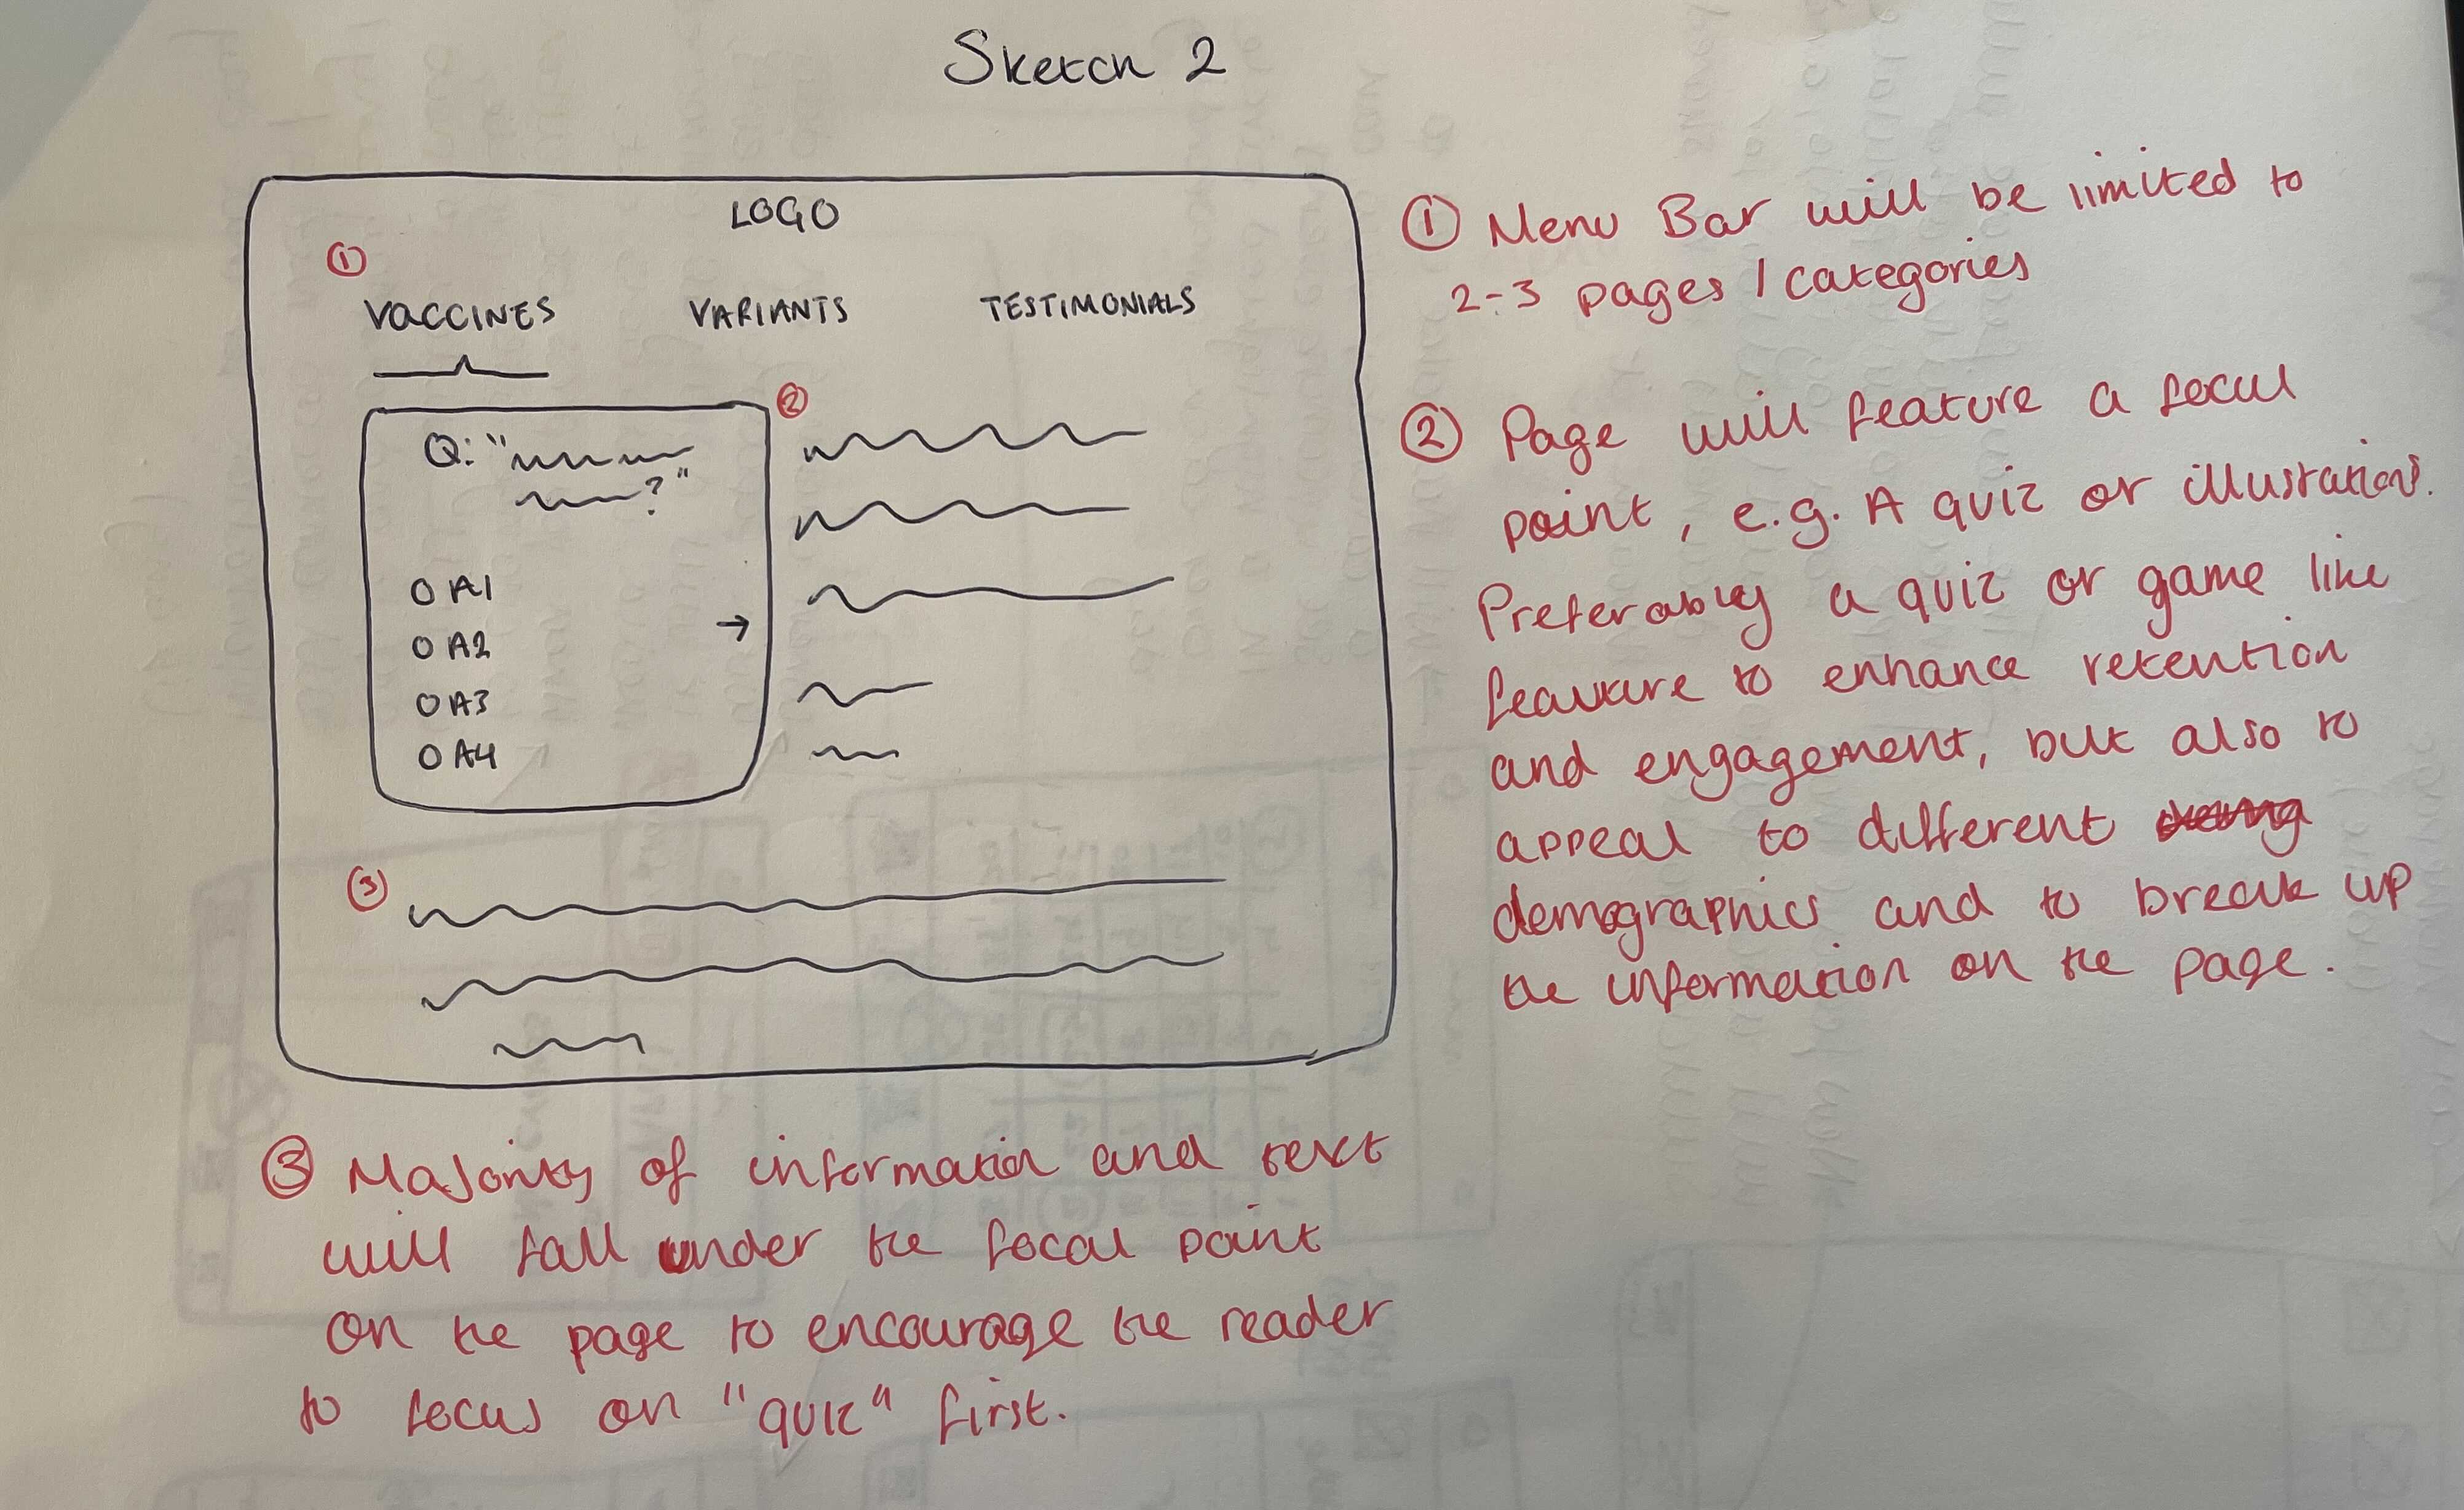 Sketch 2
LOGO
①
VACCINES VARIANTS TESTIMONIALS
②
Q: "
?"
O A1
O A2
→
O A3
O A4
③
① Menu Bar will be limited to
2-3 pages / categories
② Page will feature a focul
point, e.g. A quiz or illustrations.
Preferably a quiz or game like
feature to enhance retention
and engagement, but also to
appeal to different
demographics and to break up
the information on the page.
③ Majority of information and text
will fall under the focal point
on the page to encourage the reader
to focus on "quiz" first.